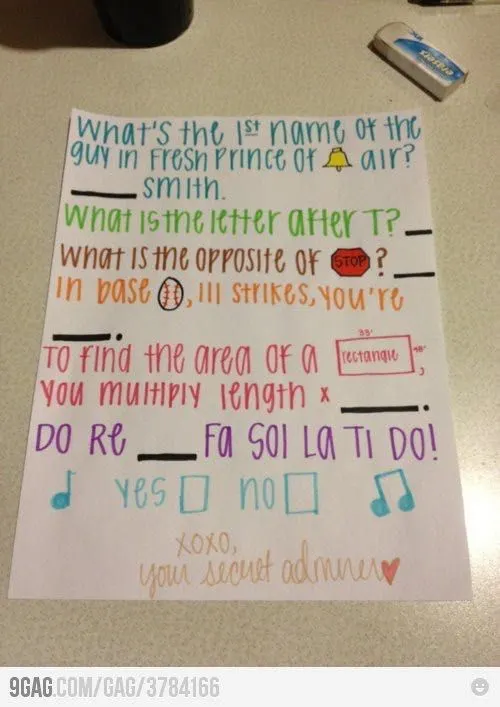 erasers
What's the 1st name of the
guy in Fresh Prince of air?
____ smith.
What is the letter after T? __
What is the opposite of STOP ? ___
In base , III strikes, you're
____.
33'
To find the area of a rectangle 48',
you multiply length x ____.
DO Re ____ Fa Sol La Ti DO!
yes no
xoxo,
your secret admirer
9GAG.COM/GAG/3784166